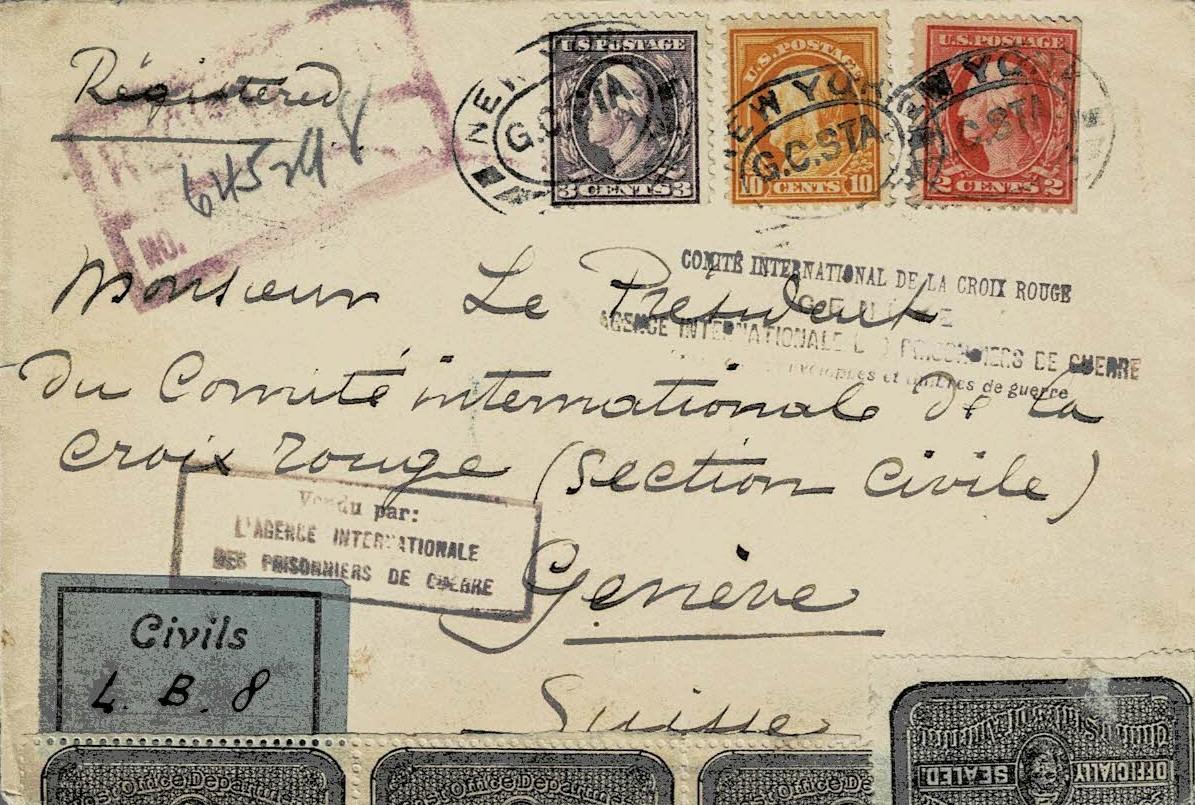 Régistered
64524 8
NO.
U.S. POSTAGE
3 CENTS 3
U.S. POSTAGE
10 CENTS 10
U.S. POSTAGE
2 CENTS 2
NEW YORK
G.C.STA.
NEW YORK
G.C.STA.
NEW YO
G.C.STA.
Monsieur Le Président
COMITÉ INTERNATIONAL DE LA CROIX ROUGE
GENÈVE
AGENCE INTERNATIONALE PRISONNIERS DE GUERRE
enveloppes et timbres de guerre
Du Comité internationale De la
Croix rouge (Section Civile)
Vendu par:
L'AGENCE INTERNATIONALE
DES PRISONNIERS DE GUERRE
Genève
Suisse
Civils
L. B. 8
Post Office Departm
Post Office Departm
Post Office De
United States of America
OFFICIALLY SEALED